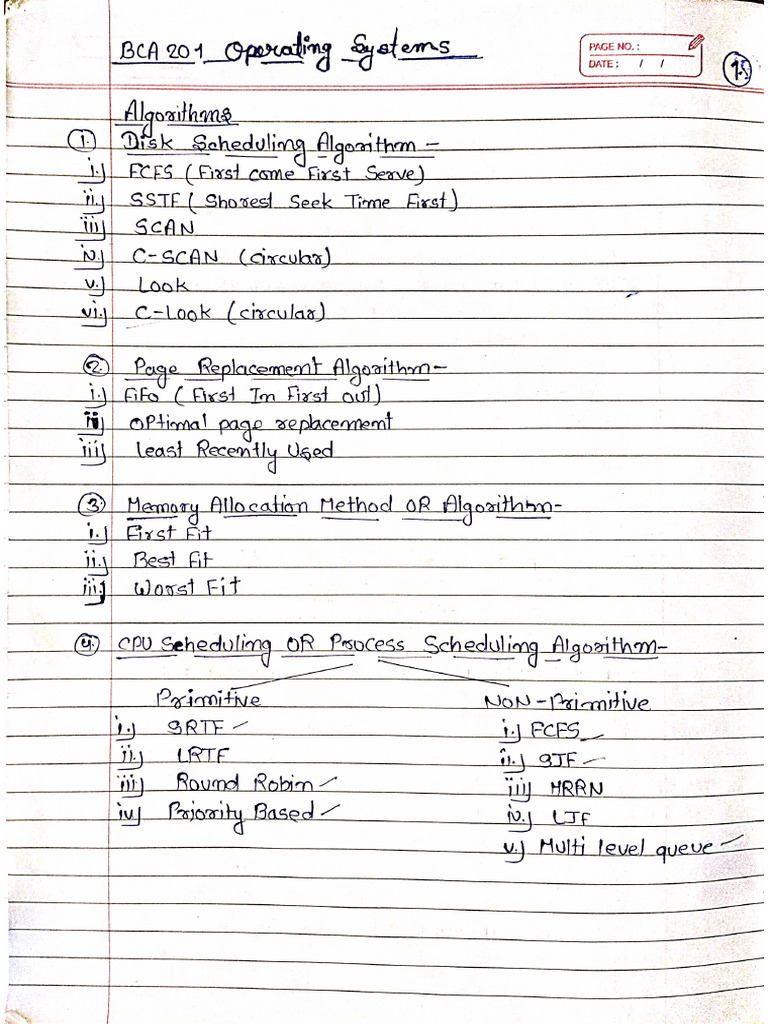 BCA 201 Operating Systems
PAGE NO.:
DATE: / /
Algorithms
1. Disk Scheduling Algorithm -
i.) FCFS (First come First Serve)
ii.) SSTF (Shorest Seek Time First)
iii) SCAN
iv.) C-SCAN (circular)
v.) Look
vi.) C-Look (circular)
2. Page Replacement Algorithm-
i.) FiFo (First In First out)
ii) OPtimal page replacement
iii) least Recently Used
3. Memory Allocation Method OR Algorithm-
i.) First Fit
ii.) Best Fit
iii.) Worst Fit
4. CPU Scheduling OR Process Scheduling Algorithm-
Primitive NON-Primitive
i.) SRTF i.) FCFS
ii.) LRTF ii.) SJF
iii) Round Robin iii) HRRN
iv) Priority Based iv.) LJF
v.) Multi level queue